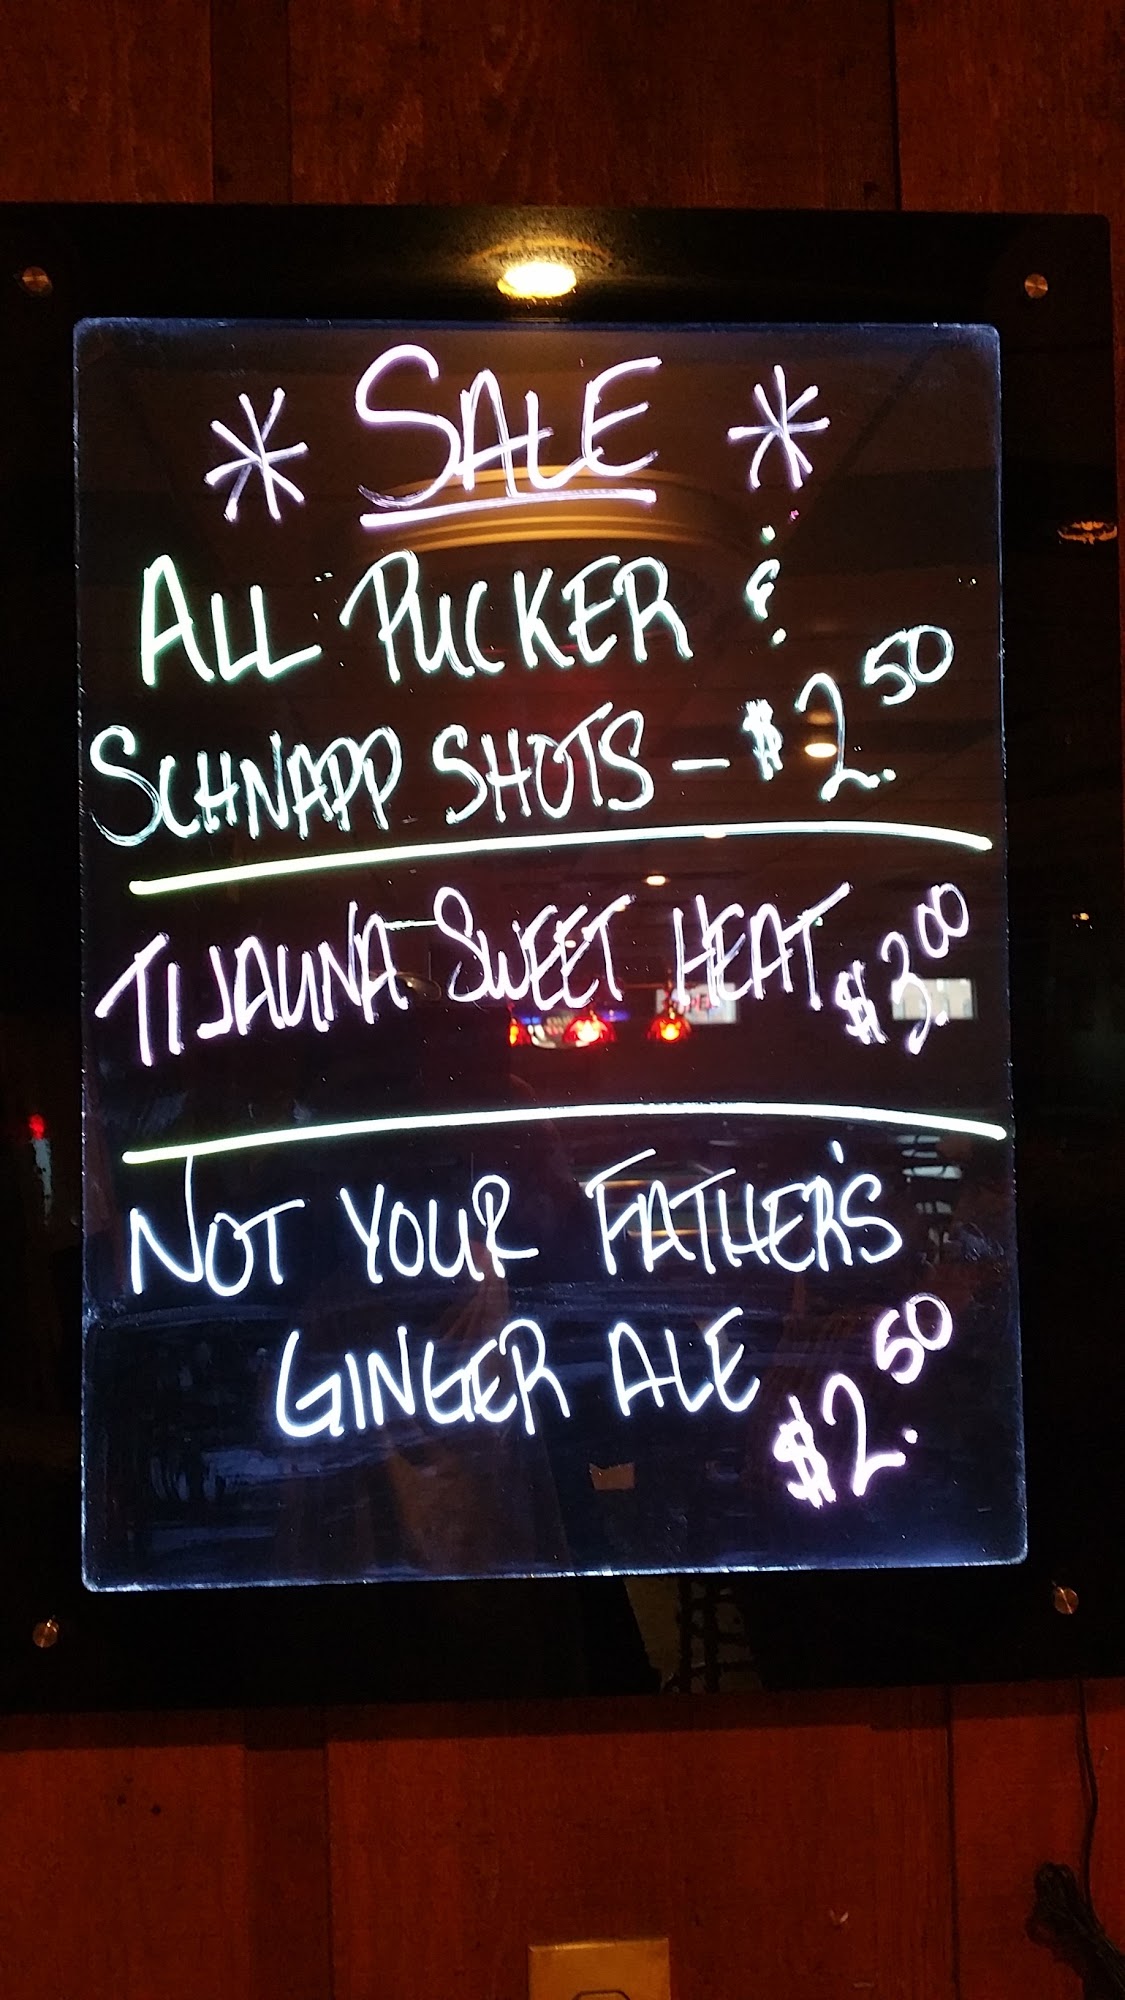 * SALE *
ALL PUCKER &
SCHNAPP SHOTS - $2.50
TIJAUNA SWEET HEAT $3.00
NOT YOUR FATHER'S
GINGER ALE
$2.50